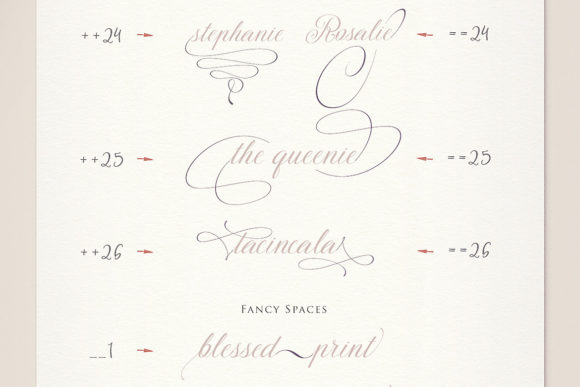 ++24 stephanie Rosalie ==24
++25 the queenie ==25
++26 tacincala ==26
Fancy Spaces
__1 blessed print